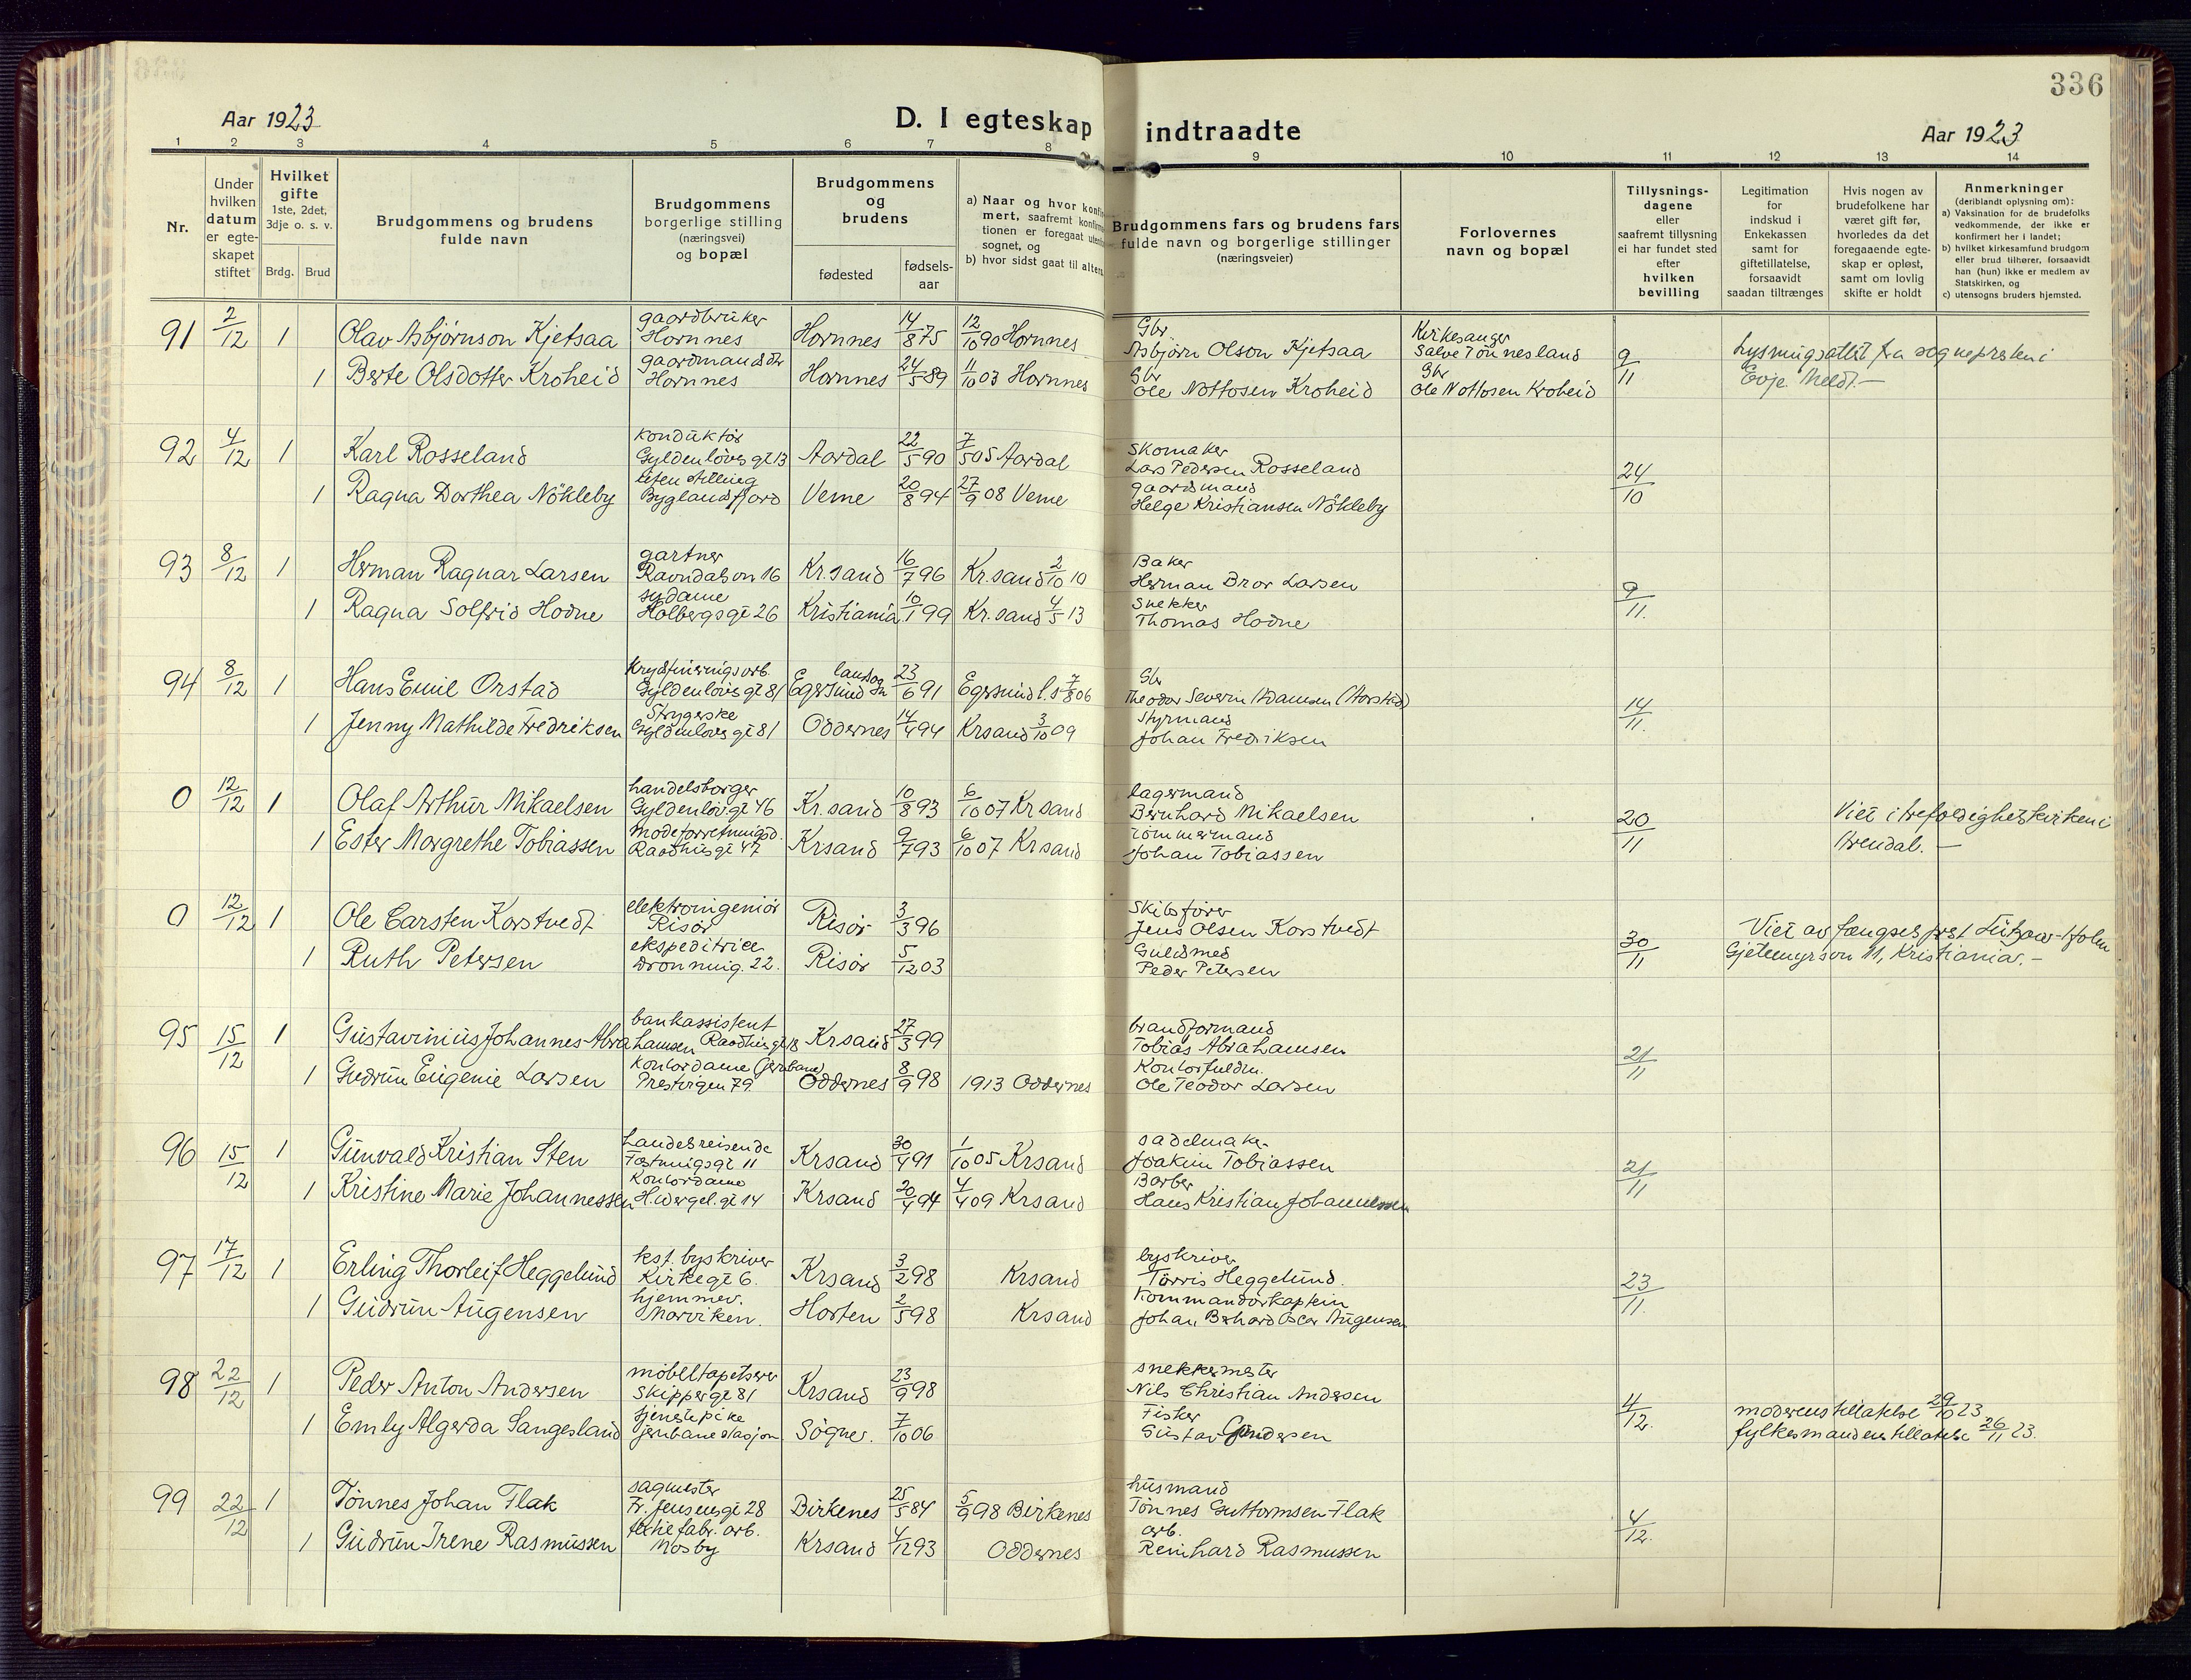 336
Aar 1923
D. I egteskap indtraadte
Aar 1923
1 2 3 4 5 6 7 8 9 10 11 12 13 14
Nr.
Under hvilken datum er egteskapet stiftet
Hvilket gifte
1ste, 2det, 3dje o. s. v.
Brdg. Brud
Brudgommens og brudens fulde navn
Brudgommens borgerlige stilling (næringsvei) og bopæl
Brudgommens og brudens
fødested
fødselsaar
a) Naar og hvor
mert, saafremt
tionen er foregaat
sognet, og
b) hvor sidst gaat til
Brudgommens fars og brudens fars
fulde navn og borgerlige stillinger
(næringsveier)
Forlovernes
navn og bopæl
Tillysningsdagene
eller
saafremt tillysning
ei har fundet sted
efter
hvilken
bevilling
Legitimation
for
indskud i
Enkekassen
samt for
giftetillatelse,
forsaavidt
saadan tiltrænges
Hvis nogen av
brudefolkene har
været gift før,
hvorledes da det
foregaaende egteskap er opløst,
samt om lovlig
skifte er holdt
Anmerkninger
(deriblandt oplysning om):
a) Vaksination for de brudefolks
vedkommende, der ikke er
konfirmert her i landet;
b) hvilket kirkesamfund brudgom
eller brud tilhører, forsaavidt
han (hun) ikke er medlem av
Statskirken, og
c) utensogns bruders hjemsted.
91 2/12 1 Olav Asbjørnson Kjetsaa gaardbruker Hornnes Hornnes 14/8 75 12/10 90 Hornnes Gbr Asbjørn Olson Kjetsaa Kirkesanger Salve Tønnesland 9/11 Lysningsattest fra sognepresten i
1 Berte Olsdotter Kroheid gaardmandsdtr Hornnes Hornnes 24/5 89 11/10 03 Hornnes Gbr Ole Nottosen Kroheid Gbr Ole Nottosen Kroheid Evje
92 4/12 1 Karl Rosseland konduktør Gyldenløves gt 13 Aardal 22/5 90 7/5 05 Aardal Skomaker Lars Pedersen Rosseland 24/10
1 Ragna Dorthea Nökleby uten stilling Byglandsfjord Verne 20/8 94 27/9 08 Verne gaardmand Helge Kristiansen Nökleby
93 8/12 1 Herman Ragnar Larsen gartner Ravndalsvn 16 Kr.sand 16/7 96 Kr.sand 2/10 10 Baker Herman Bror Larsen 9/11.
1 Ragna Solfrid Hodne sydame Holbergsgt 26 Kristiania 10/1 99 Kr.sand 4/5 13 Snekker Thomas Hodne
94 8/12 1 Hans Emil Orstad Gyldenløvesgt 81 Egersund landsogn 23/6 91 Egersund l.s. 7/8 06 Gbr Theodor Severin Adamsen (Aarstad) 14/11.
1 Jenny Mathilde Fredriksen Strygerske Gyldenløvesgt 81 Oddernes 14/4 94 Krsand 3/10 09 Styrmand Johan Fredriksen
0 12/12 1 Olaf Arthur Mikaelsen handelsborger Gyldenløvgt 46 Kr.sand 10/8 93 6/10 07 Krsand lagermand Bernhard Mikaelsen 20/11 Viet i trefoldighetskirken i
1 Ester Margrethe Tobiassen Modeforretningsd. Raadhusgt 47 Krsand 9/7 93 6/10 07 Krsand Tömmermand Johan Tobiassen Arendal.—
0 12/12 1 Ole Carsten Korstvedt elektroingeniør Risør Risør 3/3 96 Skibsfører Jens Olsen Korstvedt 30/11 Viet av fængselsprest Lützow-Holm
1 Ruth Petersen ekspeditrice Dronning. 22. Risør 5/12 03 Guldsmed Peder Petersen Gjetemyrsvn 11, Kristiania.—
95 15/12 1 Gustavinius Johannes Abrahamsen bankassistent Raadhusgt 18 Krsand 27/3 99 brandformand Tobias Abrahamsen 21/11
1 Gudrun Eugenie Larsen Kontordame (Jernbane) Prestvgen 79. Oddernes 8/9 98 1913 Oddernes Kontorfuldm. Ole Teodor Larsen
96 15/12 1 Gunvald Kristian Sten Handelsreisende Fæstningsgt 11 Krsand 30/4 91 1/10 05 Krsand sadelmaker Joakim Tobiassen 21/11
1 Kristine Marie Johannessen Kontordame H. Wergel. gt 14 Krsand 20/4 94 4/4 09 Krsand Barber Hans Kristian Johannessen
97 17/12 1 Erling Thorleif Heggelund kst. byskriver Kirkegt 6. Krsand 3/2 98 Krsand byskriver Tørris Heggelund. 23/11.
1 Gudrun Augensen hjemmev. Marviken. Horten 2/5 98 Krsand Kommandørkaptein Johan Bernhard Oscar Augensen
98 22/12 1 Peder Anton Andersen möbeltapetserer Skippergt 81 Krsand 23/9 98 snekkermester Nils Christian Andersen 4/12. moderens tillatelse 29/10 23
1 Emly Algerda Langesland tjenestepike jernbanestasjon Søgne. 7/10 06 Fisker Gustav Gundersen fylkesmandens tillatelse 26/11 23.
99 22/12 1 Tönnes Johan Flak sagmester Fr. Jensensgt 28 Birkenes 25/5 84 5/9 98 Birkenes husmand Tönnes Guttormsen Flak 4/12.
1 Gudrun Irene Rasmussen fabr. arb. Mosby Krsand 4/12 93 Oddernes arb. Reinhard Rasmussen